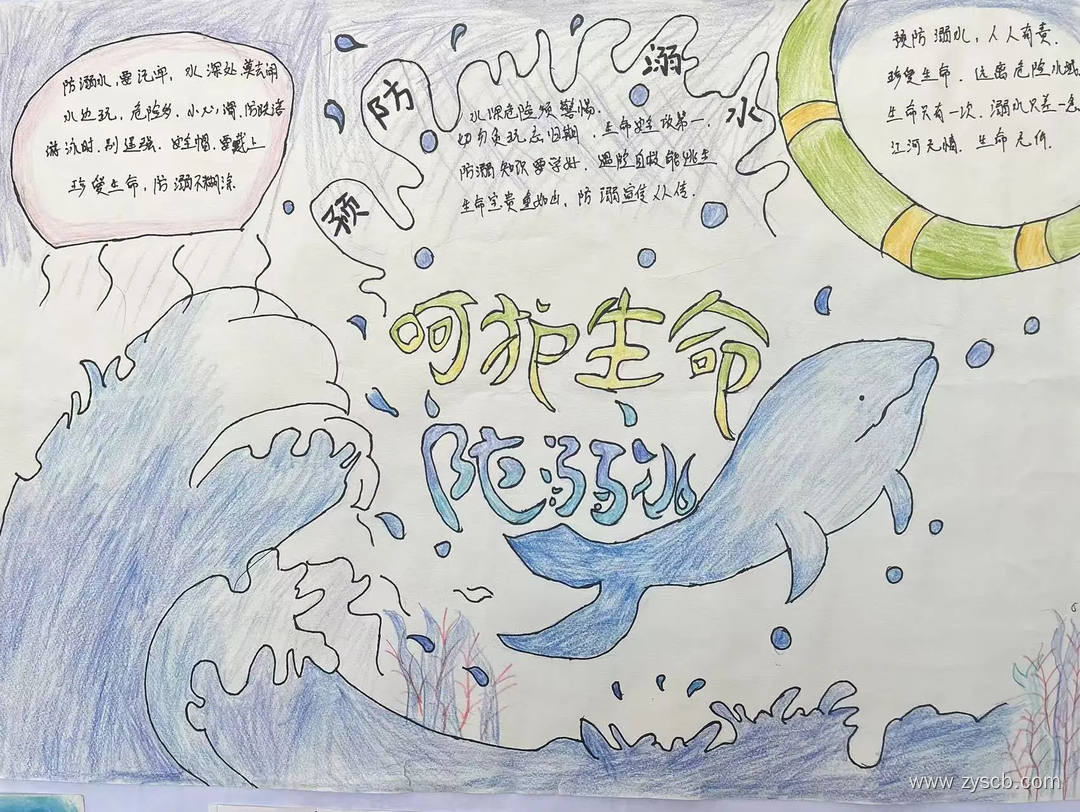 防溺水,要记牢,水深处莫去闹
水边玩,危险多,小心滑,防跌落
游泳时,别逞强,安全帽,要戴上
珍爱生命,防溺不糊涂.
预
防
溺
水
水深危险须警惕,
切勿贪玩忘归期,生命安全放第一.
防溺知识要学好,遇险自救能逃生
生命宝贵重如山,防溺宣传人人传.
预防溺水,人人有责.
珍爱生命,远离危险水域
生命只有一次,溺水只差一念
江河无情,生命无价.
呵护生命
防溺水
www.zyscb.com